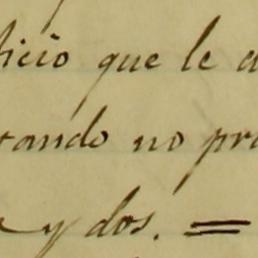 ficio que le d
tando no pro
y dos. =